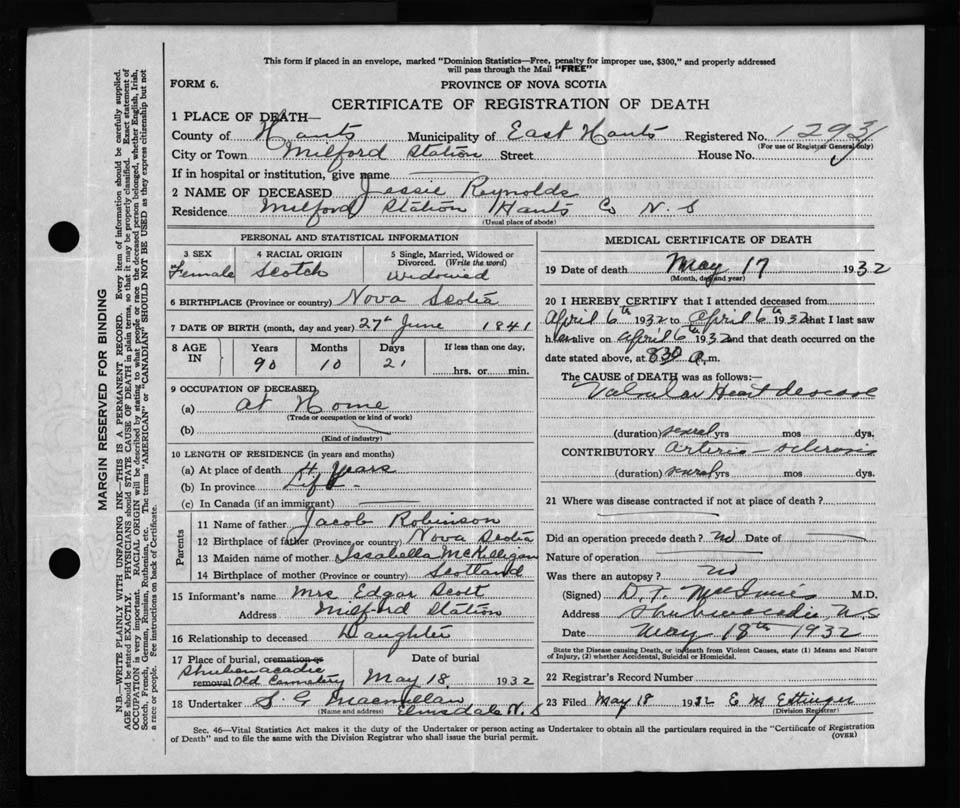 This form if placed in an envelope, marked "Dominion Statistics—Free, penalty for improper use, $300," and properly addressed
will pass through the Mail "FREE"
FORM 6.
PROVINCE OF NOVA SCOTIA
CERTIFICATE OF REGISTRATION OF DEATH
1 PLACE OF DEATH—
County of Hants Municipality of East Hants Registered No. 1293
(For use of Registrar General only)
City or Town Milford Station Street House No.
If in hospital or institution, give name
2 NAME OF DECEASED Jessie Reynolds
Residence Milford Station Hants Co N. S
(Usual place of abode)
PERSONAL AND STATISTICAL INFORMATION
3 SEX 4 RACIAL ORIGIN 5 Single, Married, Widowed or Divorced. (Write the word)
Female Scotch Widowed
6 BIRTHPLACE (Province or country) Nova Scotia
7 DATE OF BIRTH (month, day and year) 27th June 1841
8 AGE IN Years Months Days If less than one day,
90 10 21 hrs. or min.
9 OCCUPATION OF DECEASED
(a) At Home
(Trade or occupation or kind of work)
(b)
(Kind of industry)
10 LENGTH OF RESIDENCE (in years and months)
(a) At place of death 4 years
(b) In province Life
(c) In Canada (if an immigrant)
Parents
11 Name of father Jacob Robinson
12 Birthplace of father (Province or country) Nova Scotia
13 Maiden name of mother Issabella McKilligan
14 Birthplace of mother (Province or country) Scotland
15 Informant's name Mrs Edgar Scott
Address Milford Station
16 Relationship to deceased Daughter
17 Place of burial, cremation or removal Date of burial
Shubenacadie
Old Cemetery May 18, 1932
18 Undertaker S. G Macmillan
(Name and address) Elmsdale N. S
MEDICAL CERTIFICATE OF DEATH
19 Date of death May 17 1932
(Month, day and year)
20 I HEREBY CERTIFY that I attended deceased from
April 6th 1932 to April 6th 1932 that I last saw
her alive on April 6th 1932 and that death occurred on the
date stated above, at 8.30 a.m.
The CAUSE of DEATH was as follows:—
Valvular Heart desease
(duration) several yrs mos dys.
CONTRIBUTORY arterio-sclerosis
(duration) several yrs mos dys.
21 Where was disease contracted if not at place of death?
Did an operation precede death? no Date of
Nature of operation
Was there an autopsy? no
(Signed) D. T. M.D.
Address Shubenacadie N.S
Date May 18th 1932
State the Disease causing Death, or in death from Violent Causes, state (1) Means and Nature
of Injury, (2) whether Accidental, Suicidal or Homicidal.
22 Registrar's Record Number
23 Filed May 18 1932 E M Ettinger
(Division Registrar)
Sec. 46—Vital Statistics Act makes it the duty of the Undertaker or person acting as Undertaker to obtain all the particulars required in the "Certificate of Registration
of Death" and to file the same with the Division Registrar who shall issue the burial permit.
(OVER)
MARGIN RESERVED FOR BINDING
N.B.—WRITE PLAINLY WITH UNFADING INK—THIS IS A PERMANENT RECORD. Every item of information should be carefully supplied.
AGE should be stated EXACTLY. PHYSICIANS should STATE CAUSE OF DEATH in plain terms, so that it may be properly classified. Exact statement of
OCCUPATION is very important. RACIAL ORIGIN will be described by stating to what people or race the deceased person belonged, whether English, Irish,
Scotch, French, German, Russian, Ruthenian, etc. The terms "AMERICAN" or "CANADIAN" SHOULD NOT BE USED as they express citizenship but not
a race or people. See instructions on back of Certificate.